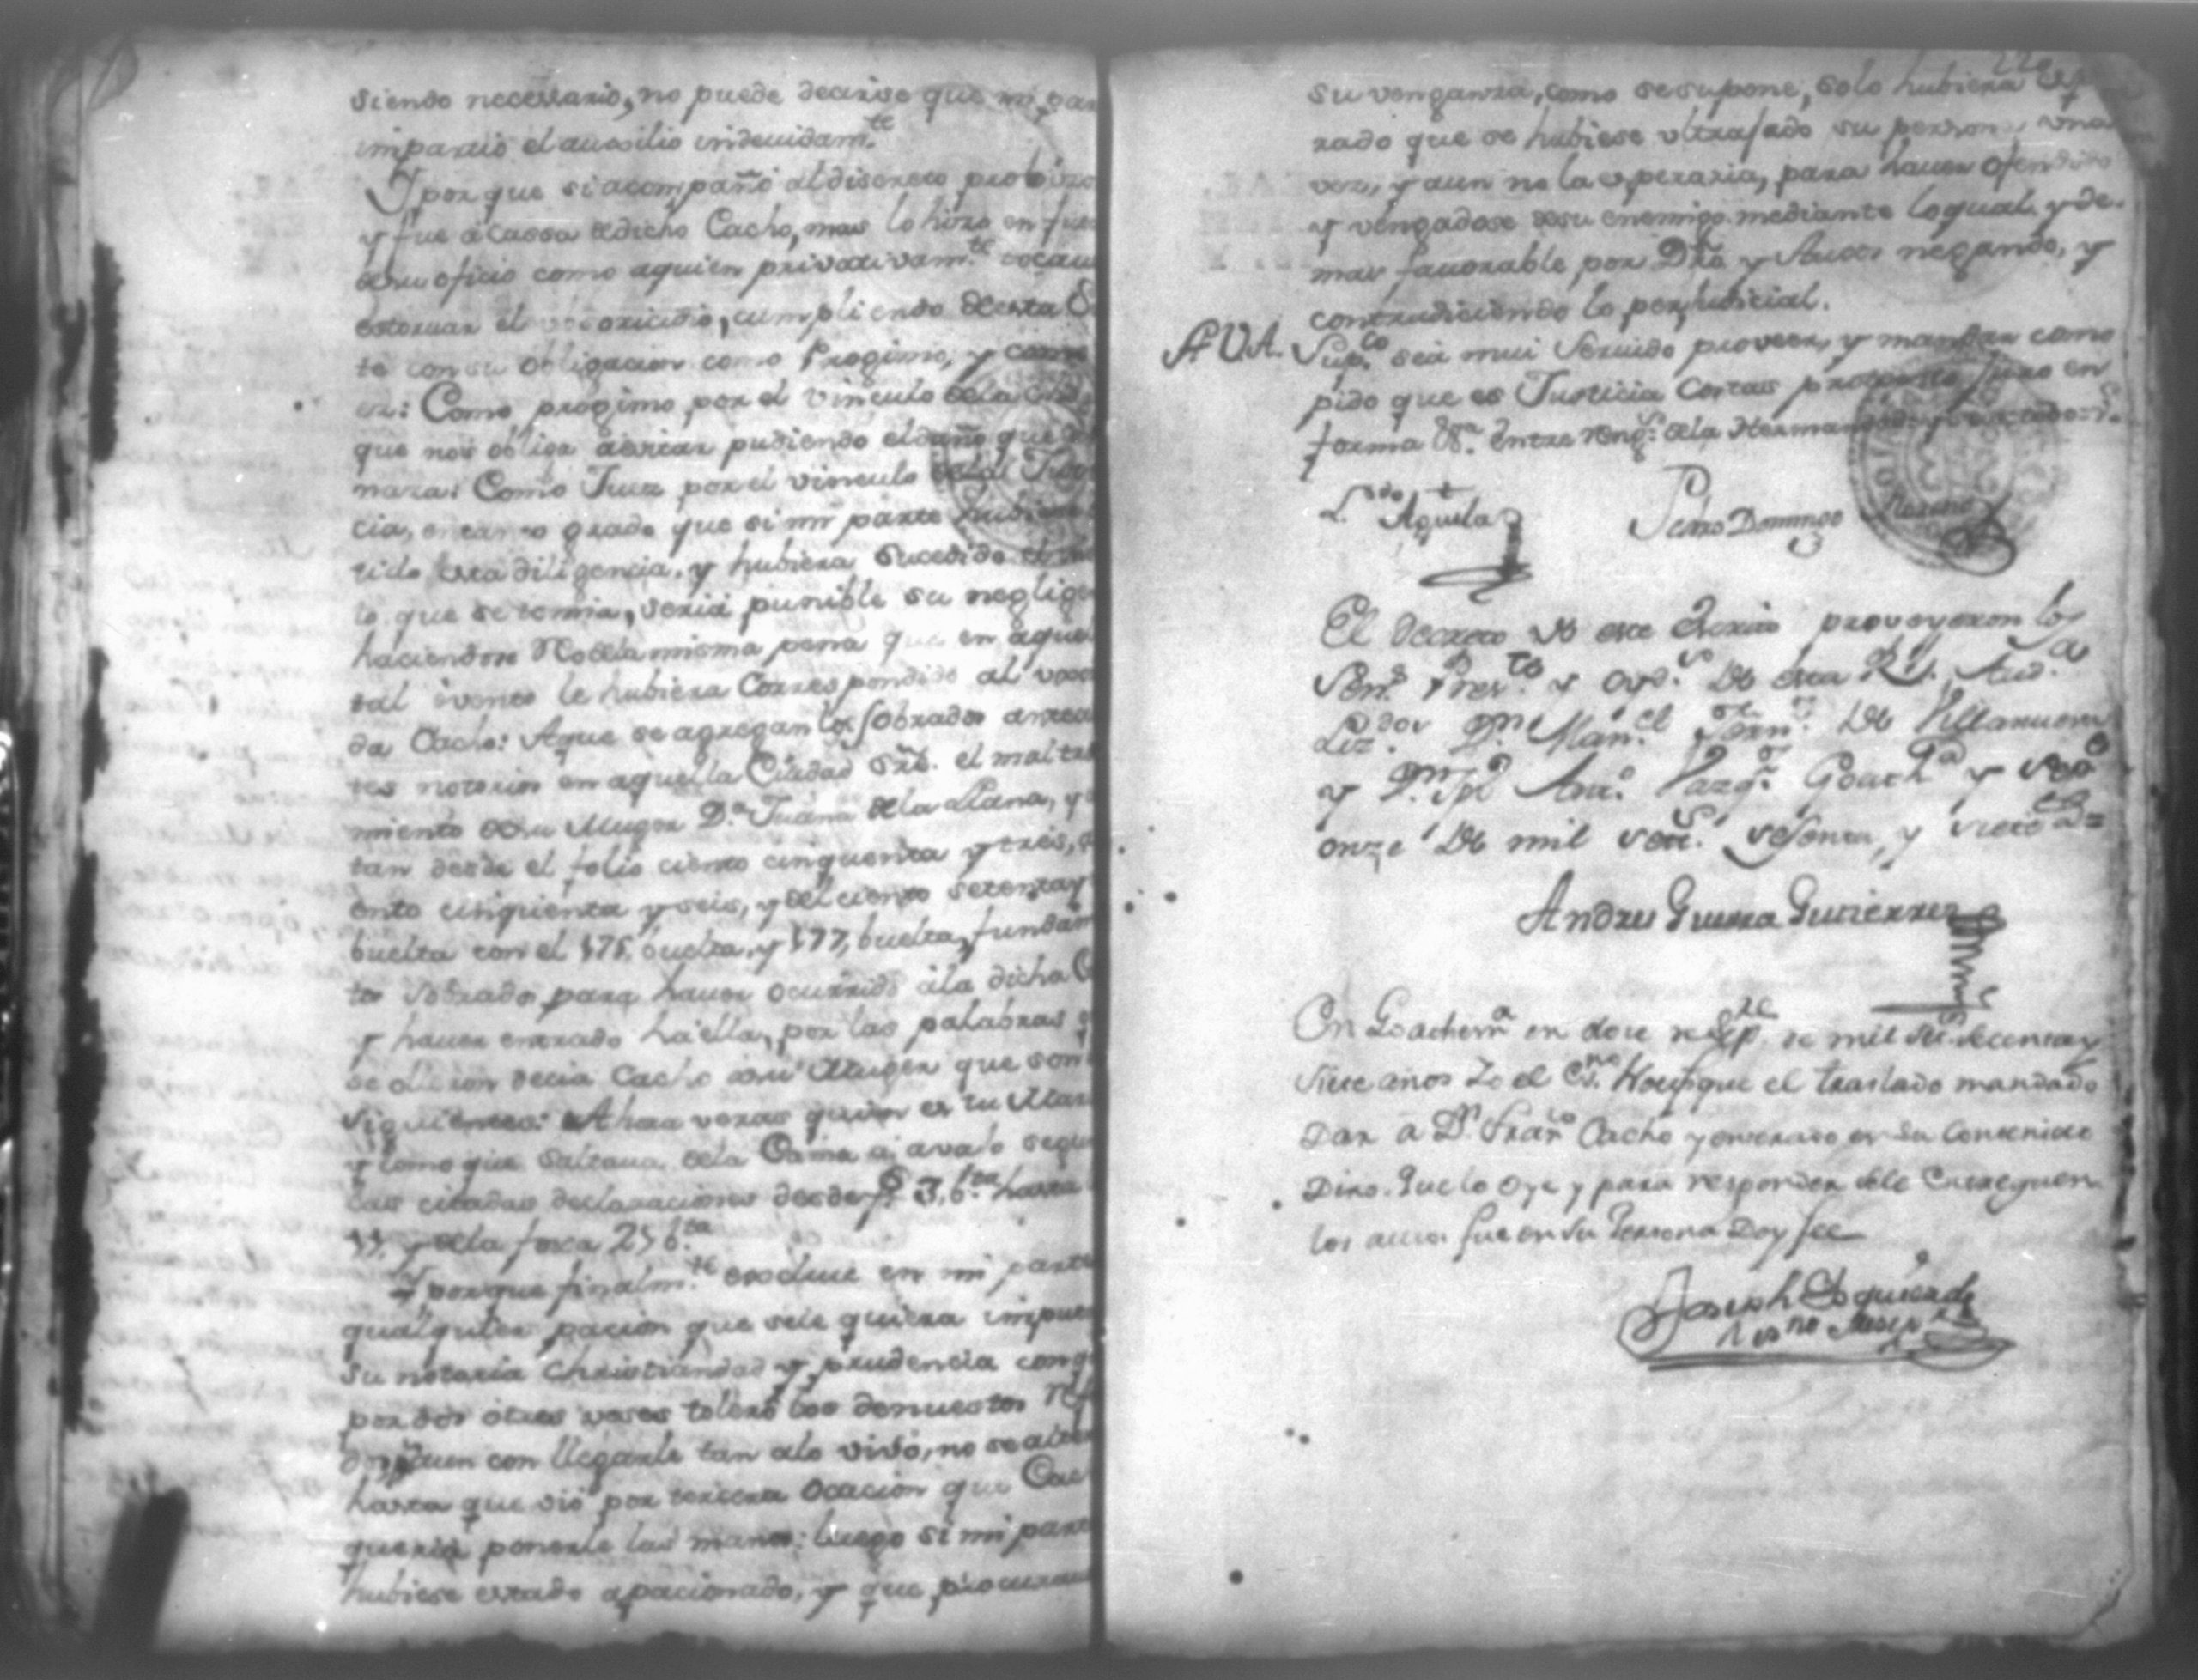 siendo necessario, no puede decirse que mi par
impartio el auxilio indeuidam.te
Y por que si acompañó al discreto probizo
y fue à cassa de dicho Cacho, mas lo hizo en fue
de su oficio como aquien privativam.te tocaua
estoruar el cumpliendo de esta
te con su obligacion como Progimo, y como
ez: Como progimo, por el vinculo de la
que nos obliga àeuitar pudiendo el daño que
naza: Como Juez por el vinculo de la Justi
cia, en tanto grado que si mi parte hubiera
tido esta diligencia, y hubiera sucedido el
lo que se temia, seria punible su neglige
haciendose Reo de la misma pena que en aquel
tal ivento le hubiera Correspondido al
da Cacho: Aque se agregan los sobrados antece
tes notorios en aquella Ciudad sre. el maltra
miento de su Muger D.a Juana de la Llana, y
tan desde el folio ciento cinquenta y tres,
ento cinquenta y seis, y del ciento setenta y
buelta con el 175 buelta, y 177, buelta, fundam
to sobrado para hauer ocurrido àla dicha
y hauer entrado ha ella, por las palabras
se oieron decia Cacho asu Muger que son
siguientes: Ahora veras quien es tu Mari
y como que saltaua de la Cama a segu
las citadas declaraciones desde f.s 3, b.ta hasta
y de la foxa 256.ta
Y porque finalm.te excluie en mi parte
qualquier pacion que sele quiera impu
su notaria Christiandad y prudencia conq
por dos otras veses toleró los denuestos
aun con llegarle tan alo vivo, no se alte
hasta que vió por tercera ocacion que Cac
queria ponerle las manos: luego si mi parte
hubiese estado apacionado, y que procuraua
su venganza, como se supone, solo hubiera esp
rado que se hubiese vltrajado su persona vna
vez, y aun no la esperaria, para hauer ofendido
y vengadose desu enemigo. mediante lo qual, y de
mas fauorable por Dro. y Autos negando, y
contradiciendo lo perjudicial.
A. V. A. Sup.co seà mui seruido proveer, y mandar como
pido que es Justicia Costas protesto Juro en
forma &.a entre reng.s de la Hermandad
L.do Aguila Pedro Domingo Moreno
El Decreto de este Escrito proveyeron los
Señ.s Pres.te y Oyd.s de esta R.l Aud.a
Liz.dos D.n Man.el Fern.z De Villanueva
y D.n Jph Ant.o Goath.a y
onze De mil sett.s sesenta, y siete
Andres Guerra Gutierrez
En Goathem.a en doce de Sep.te de mil Set. Secenta y
Siete años Yo el Es.no Notifique el traslado mandado
Dar a D.n Fran.co Cacho y enterado en Su Contenido
Dixo. Que lo Oye y para responder sele Entreguen
los autos fue en Su Persona Doy fee
Joseph Ysquierdo